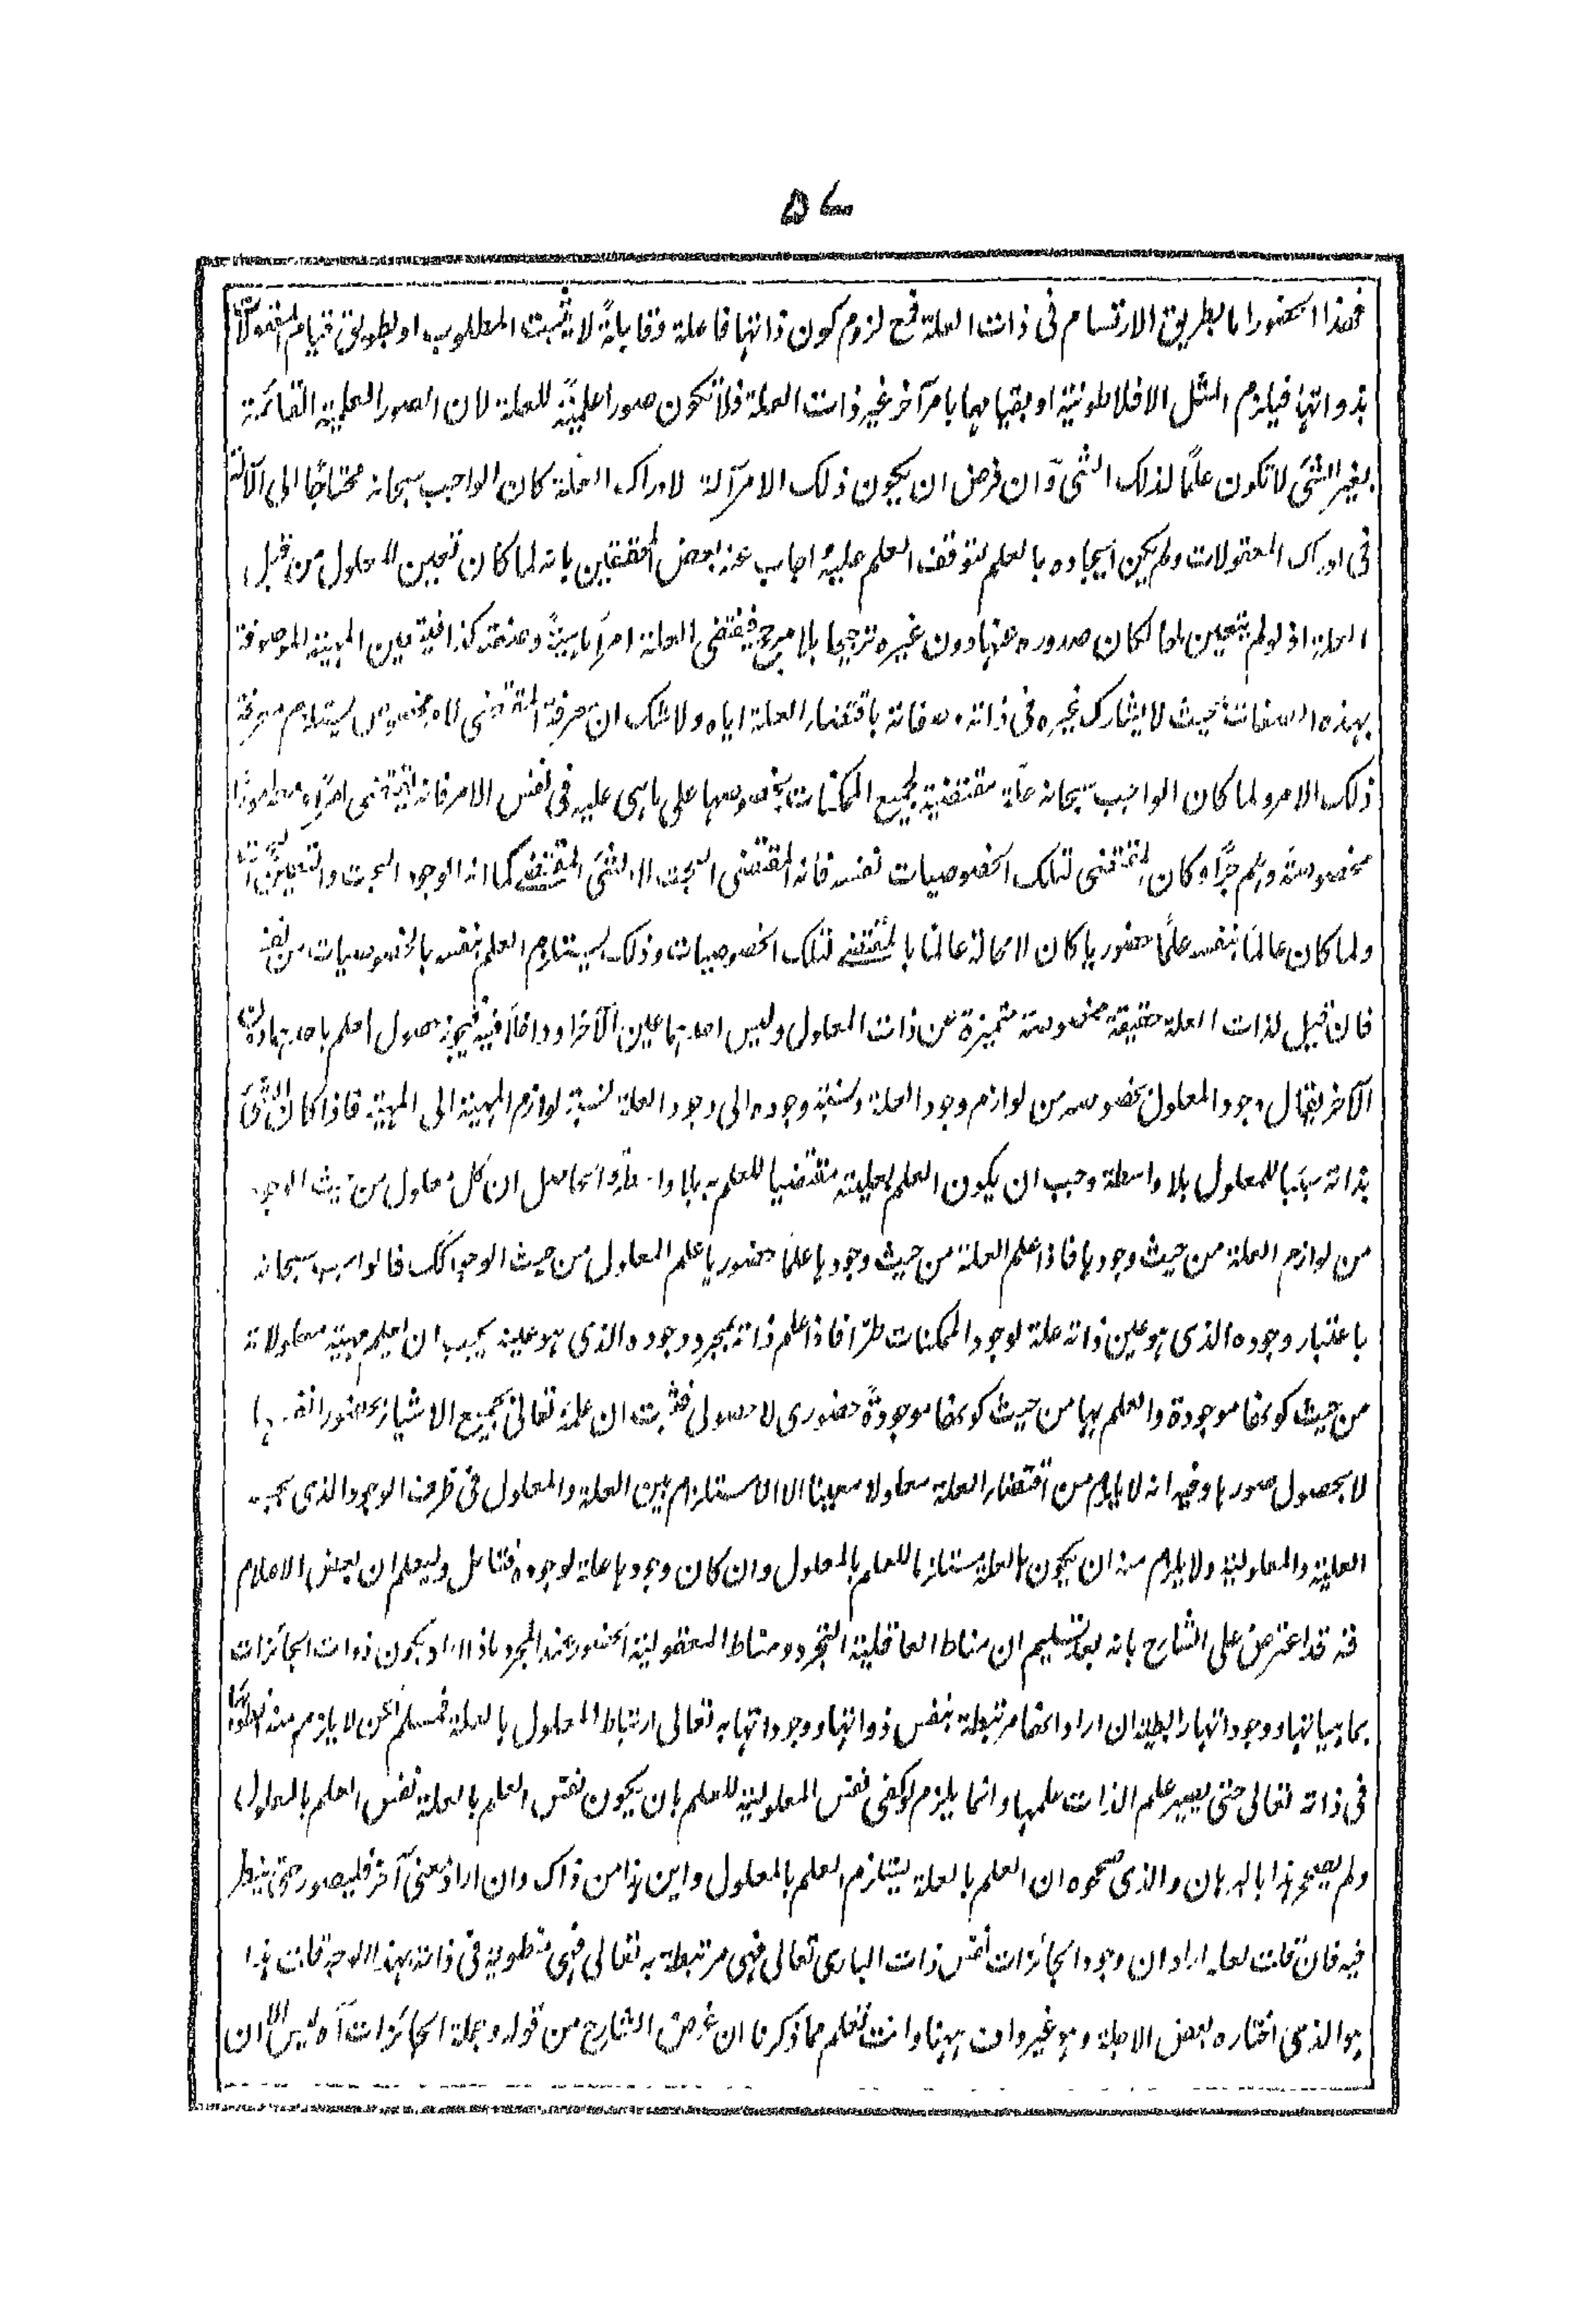 ۵۷
فهذا الحضور اما بطريق الارتسام فى ذات العلة فمع لزوم كون ذاتها فاعلة وقابلةً لا يثبت المطلوب او بطريق قيام المعقولات
بذواتها فيلزم المثل الافلاطونية او بقيامها بامر آخر غير ذات العلة فلا تكون صورا علميةً للعلة لان الصور العلمية القائمة
بغير الشئ لا تكون علمًا لذلك الشئ وان فرض ان يكون ذلك الامر آلة لادراك العلة كان الواجب سبحانه محتاجًا الى الآلة
فى ادراك المعقولات ولم يكن ايجاده بالعلم لتوقف العلم عليه اجاب عنه بعض المحققين بانه لما كان تعين المعلول من قبل
العلة اذ لو لم يتعين بها لكان صدوره عنها دون غيره ترجيحا بلا مرجح فيقتضى العلة امرًا ماهيةً وصفته كذا فيتعين المهية الموصوفة
بهذه الصفات بحيث لا يشارك غيره فى ذاته وصفاته باقتضاء العلة اياه ولا شك ان معرفة المقتضى لامر مخصوص يستلزم معرفة
ذلك الامر ولما كان الواجب سبحانه علة مقتضية لجميع الممكنات بخصوصها على ما هى عليه فى نفس الامر فانه اقتضى امرًا مخصوصًا
مخصوصة وهلم جرًا وكان المقتضى لتلك الخصوصيات نفسه فانه المقتضى البحت لا الشئ المقتضى كما انه الوجود البحت والتعين
ولما كان عالمًا بنفسه علمًا حضوريا كان لا محالة عالمًا بالمقتضى لتلك الخصوصيات وذلك يستلزم العلم بنفسه بالخصوصيات من نفسه
فان قيل لذات العلة حقيقة مخصوصة متميزة عن ذات المعلول وليس احدهما عين الآخر او داخلا فيه فيجوز حصول العلم باحدهما دون
الآخر يقال وجود المعلول بخصوصه من لوازم وجود العلة ونسبة وجوده الى وجود العلة نسبة لوازم المهية الى المهية فاذا كان الشئ
بذاته سببا للمعلول بلا واسطة وجب ان يكون العلم بعليته مقتضيا للعلم به بلا واسطة والحاصل ان كل معلول من حيث الوجود
من لوازم العلة من حيث وجودها فاذا علم العلة من حيث وجودها علمًا حضوريا علم المعلول من حيث الوجود كك فالواجب سبحانه
باعتبار وجوده الذى هو عين ذاته علة لوجود الممكنات طرّا فاذا علم ذاته بمجرد وجوده الذى هو عينه يجب ان يعلم مهية معلولاته
من حيث كونها موجودة والعلم بها من حيث كونها موجودةً حضورى لا حصولى فثبت ان علمه تعالى بجميع الاشياء بحضور انفسها
لا بحصول صورها وفيه انه لا يلزم من اقتضاء العلة معلولا معينا الا الاستلزام بين العلة والمعلول فى ظرف الوجود الذى بحسبه
العلية والمعلولية ولا يلزم منه ان يكون العلم بالعلة مستلزما للعلم بالمعلول وان كان وجودها علة لوجوده فتامل وليعلم ان بعض الاعلام
قد اعترض على الشارح بانه بعد تسليم ان مناط العاقلية التجرد ومناط المعقولية الحضور عند المجرد ماذا اراد بكون ذوات الجائزات
بماهياتها ووجوداتها رابطية ان اراد انها مرتبطة بنفس ذواتها ووجوداتها به تعالى ارتباط المعلول بالعلة فمسلم لكن لا يلزم منه انطواؤها
فى ذاته تعالى حتى يصير علم الذات علمها وانما يلزم لو كفى نفس المعلولية للعلم بان يكون نفس العلم بالعلة نفس العلم بالمعلول
ولم يصح هذا بالبرهان والذى صححوه ان العلم بالعلة يستلزم العلم بالمعلول واين هذا من ذاك وان اراد معنى آخر فليصور حتى ينظر
فيه فان قلت لعله اراد ان وجود الجائزات نفس ذات البارى تعالى فهى مرتبطة به تعالى فهى منطوية فى ذاته بهذا الوجه قلت هذا
هو الذى اختاره بعض الاجلة وهو غير واف ههنا وانت تعلم مما ذكرنا ان غرض الشارح من قوله وجملة الجائزات آه ليس الا ان